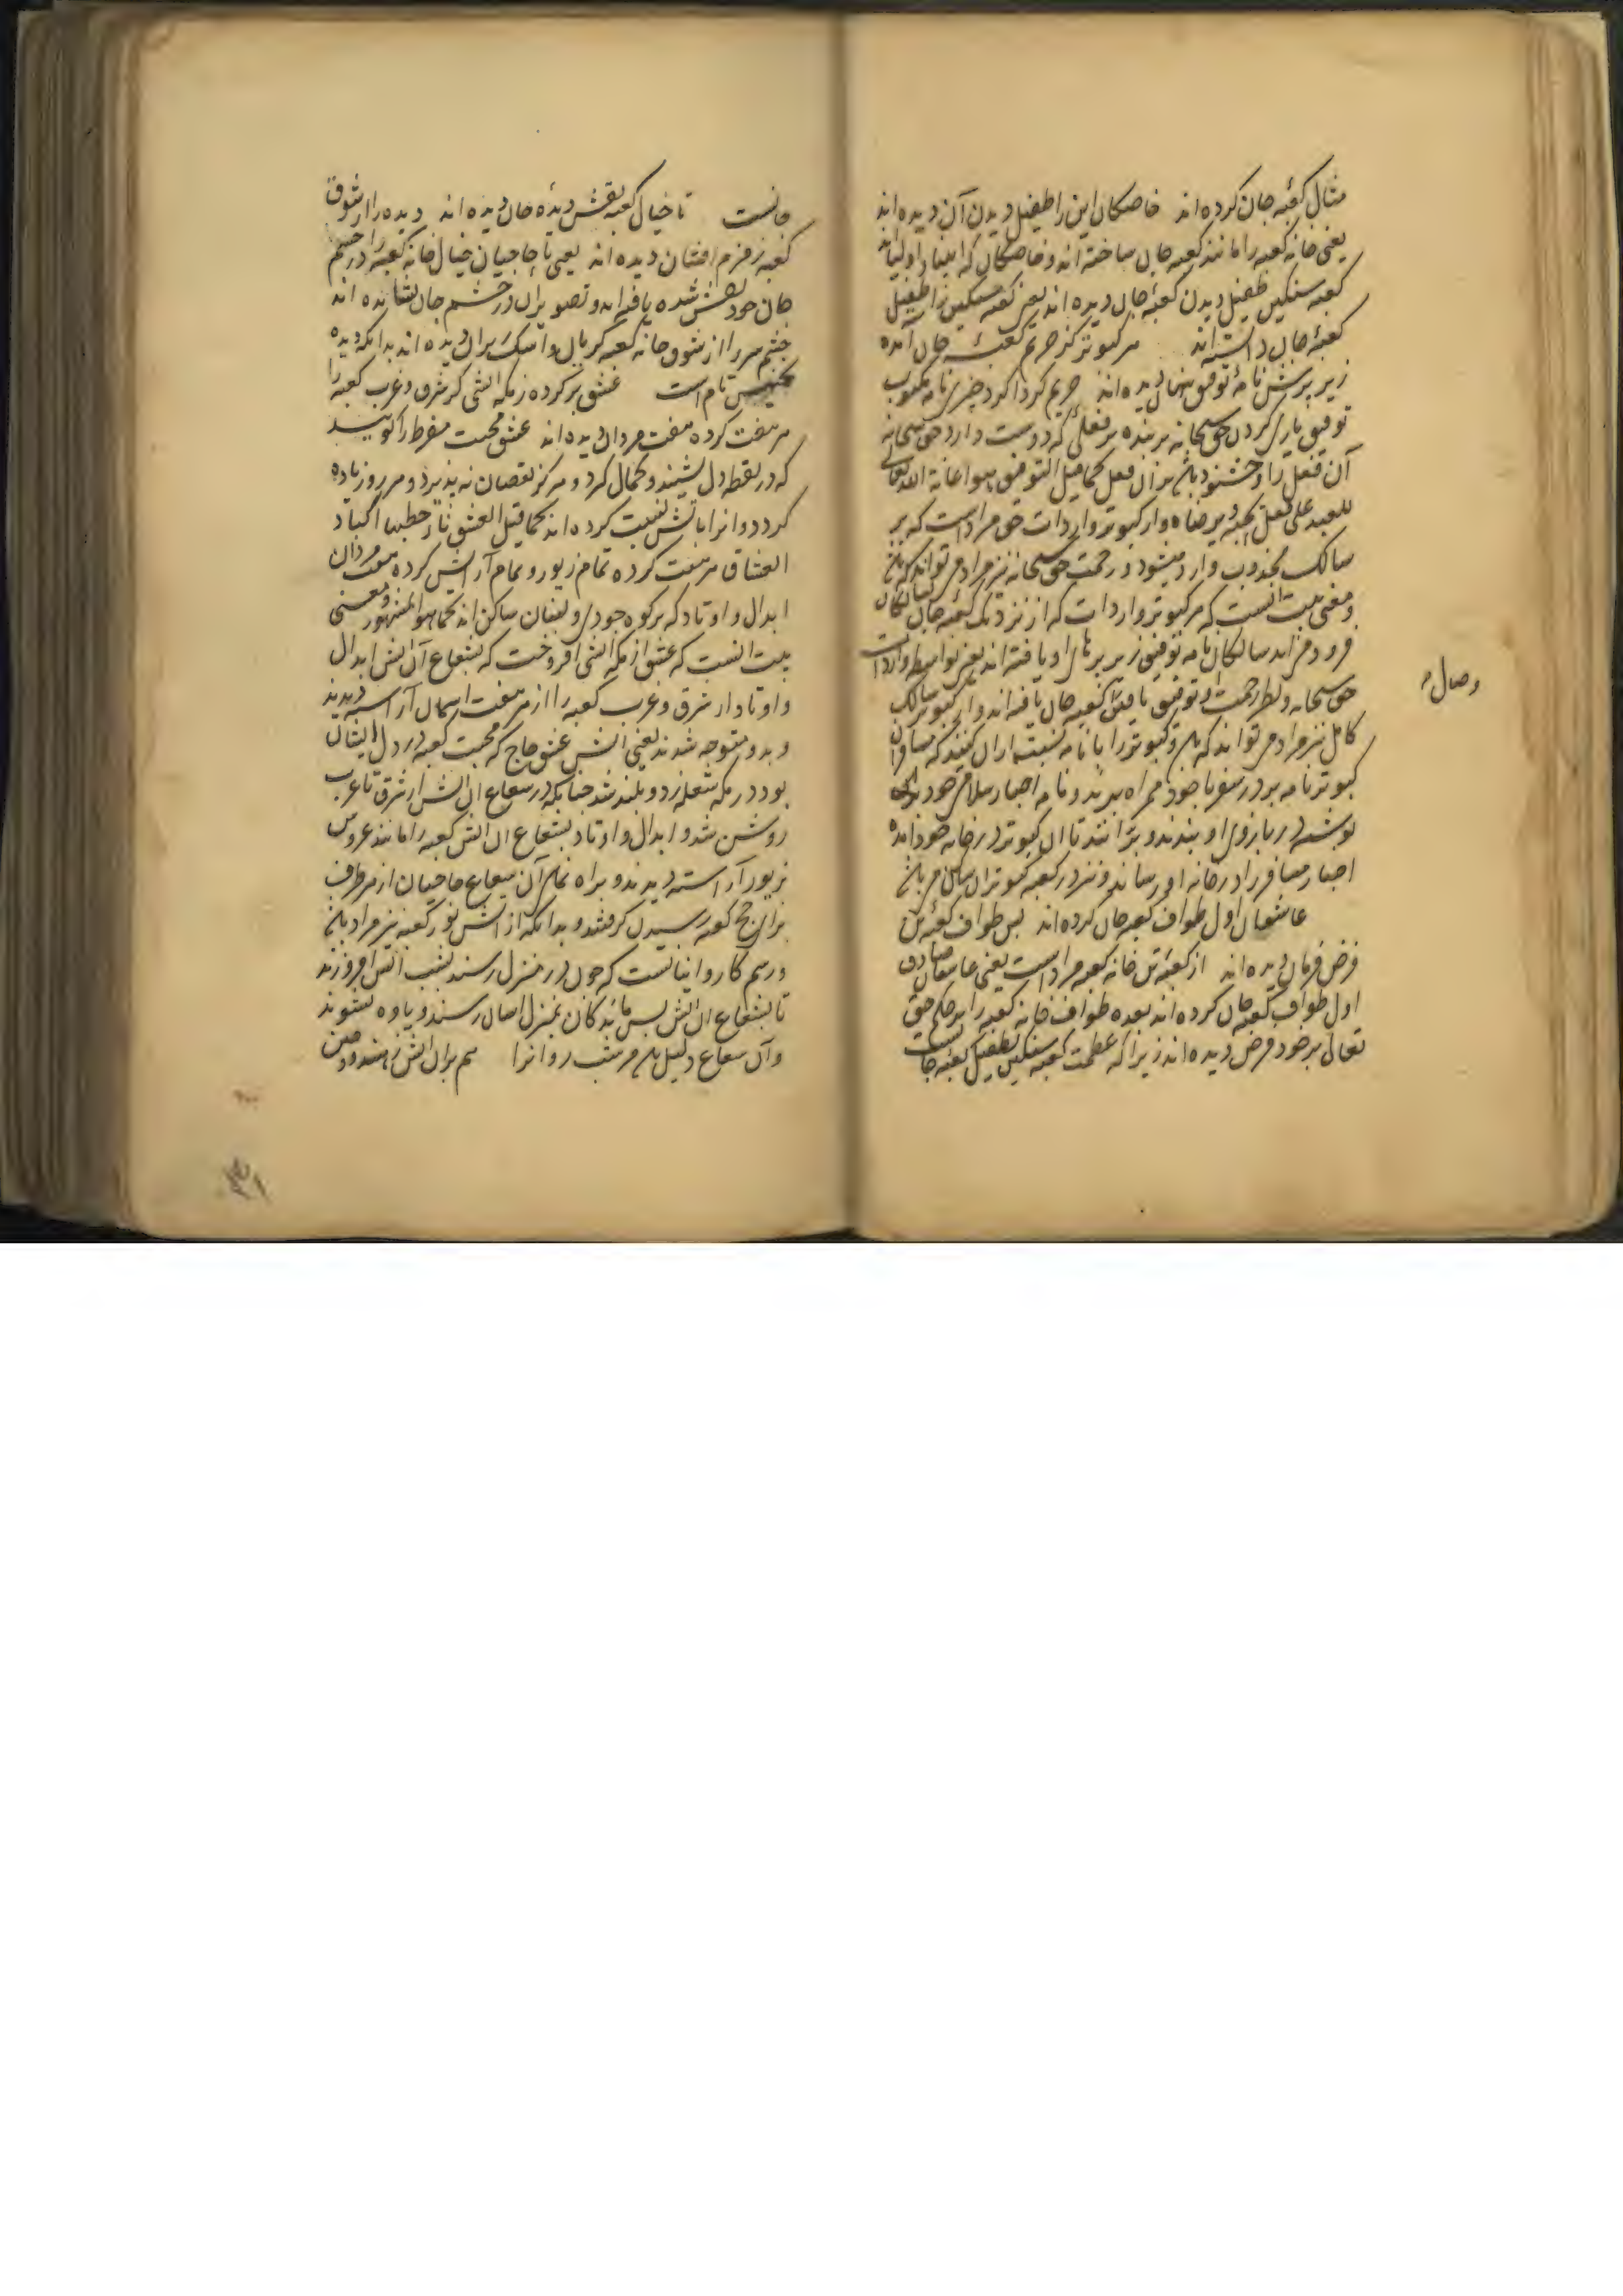 مثال کعبه جان کرده اند خاصکان این را طفیل دیدن آن دیده اند
یعنی خانه کعبه را مانند کعبه جان ساخته اند و خاصکان که انبیا و اولیااند
کعبه سنکین طفیل دیدن کعبهٔ جان دیده اند یعنی کعبه سنکین را طفیل
کعبهٔ جان دانسته اند هر کبوتر کز حریم کعبهٔ جان آمده
زیر پرش نامهٔ توفیق پنهان دیده اند حریم کردا کرد چیزی نامه مکتوب
توفیق یاری کردن حق سبحانه بر بنده بر فعلی که دوست دارد حق سبحانه
آن فعل را و خشنود باشد بران فعل کما قیل التوفیق هو اعانة الله تعالی
للعبد علی فعل یحبه و یرضاه و از کبوتر واردات حق مراد است که بر
سالک مجذوب وارد میشود و رحمت حق سبحانه نیز مراد می تواند که باشد
و معنی بیت آنست که هر کبوتر واردات که از نزدیک کعبهٔ جان سالکان
فرود می آید سالکان نامه توفیق زیر پرهای او یافته اند یعنی بواسطه واردات
حق سبحانه و نظر رحمت و توفیق یافتن کعبه جان یافته اند و از کبوتر سالک
وصال
کامل نیز مراد می تواند که باشد و کبوتر را با نامه نسبت ازان کنند که مسافران
کبوتر نامه بر در سفر با خود همراه برند و نامه اخبار سلامتی خود
نوشته در بازوی او بندند و پرانند تا آن کبوتر در خانه خود آمده
اخبار مسافر را در خانه او رساند و نیز در کعبه کبوتران ساکن می باشد
عاشقان اول طواف کعبه جان کرده اند پس طواف کعبهٔ تن
فرض فرمان دیده اند از کعبهٔ تن خانه کعبه مراد است یعنی عاشقان صادق
اول طواف کعبه جان کرده اند بعده طواف خانه کعبه را بر حکم حق
تعالی بر خود فرض دیده اند زیرا که عظمت کعبه سنکین بطفیل کعبه جانست
جانست تا خیال کعبه نقش دیدهٔ جان دیده اند دیده را از شوق
کعبه زمزم افشان دیده اند یعنی تا حاجیان خیال خانه کعبه را در چشم
جان خود نقش شده یافته اند و تصویر آن در چشم جان نشانده اند
چشم سر را از شوق خانه کعبه کریان و اشک ریزان دیده اند بدانکه دیده
تجنیس تام است عشق بر کرده ز مکه آتشی کز شرق و غرب کعبه را
هر هفت کرده هفت مردان دیده اند عشق محبت مفرط را کویند
که در نقطه دل نشیند و کمال کرد و هرکز نقصان نه پذیرد و هر روز زیاده
کردد و آنرا باتش نسبت کرده اند کما قیل العشق نار حطبها اکباد
العشاق هر هفت کرده تمام زیور و تمام آرایش کرده هفت مردان
ابدال و اوتاد که بر کوه جودی و لبنان ساکن اند کما هو المشهور و معنی
بیت آنست که عشق از مکه آتشی افروخت که بشعاع آن آتش ابدال
و اوتاد از شرق و غرب کعبه را از هر هفت آسمان آراسته دیدند
و بدو متوجه شدند یعنی آتش عشق حاج که محبت کعبه در دل ایشان
بود در مکه شعله زد و بلند شد چنانکه در شعاع آن آتش از شرق تا غرب
روشن شد و ابدال و اوتاد بشعاع آن آتش کعبه را مانند عروس
بزیور آراسته دیدند و براه نمای آن شعاع حاجیان از هر طرف
برای حج کعبه رسیدن کرفتند و بدانکه از آتش نور کعبه نیز مراد باشد
و رسم کاروانیانست که چون در منزل رسند بشب آتش افروزند
تا بشعاع آن آتش پس ماندکان بمنزل ایشان رسند و یاوه نشوند
و آن شعاع دلیل باشد مر شب روانرا هم بران آتش ز هند و چین